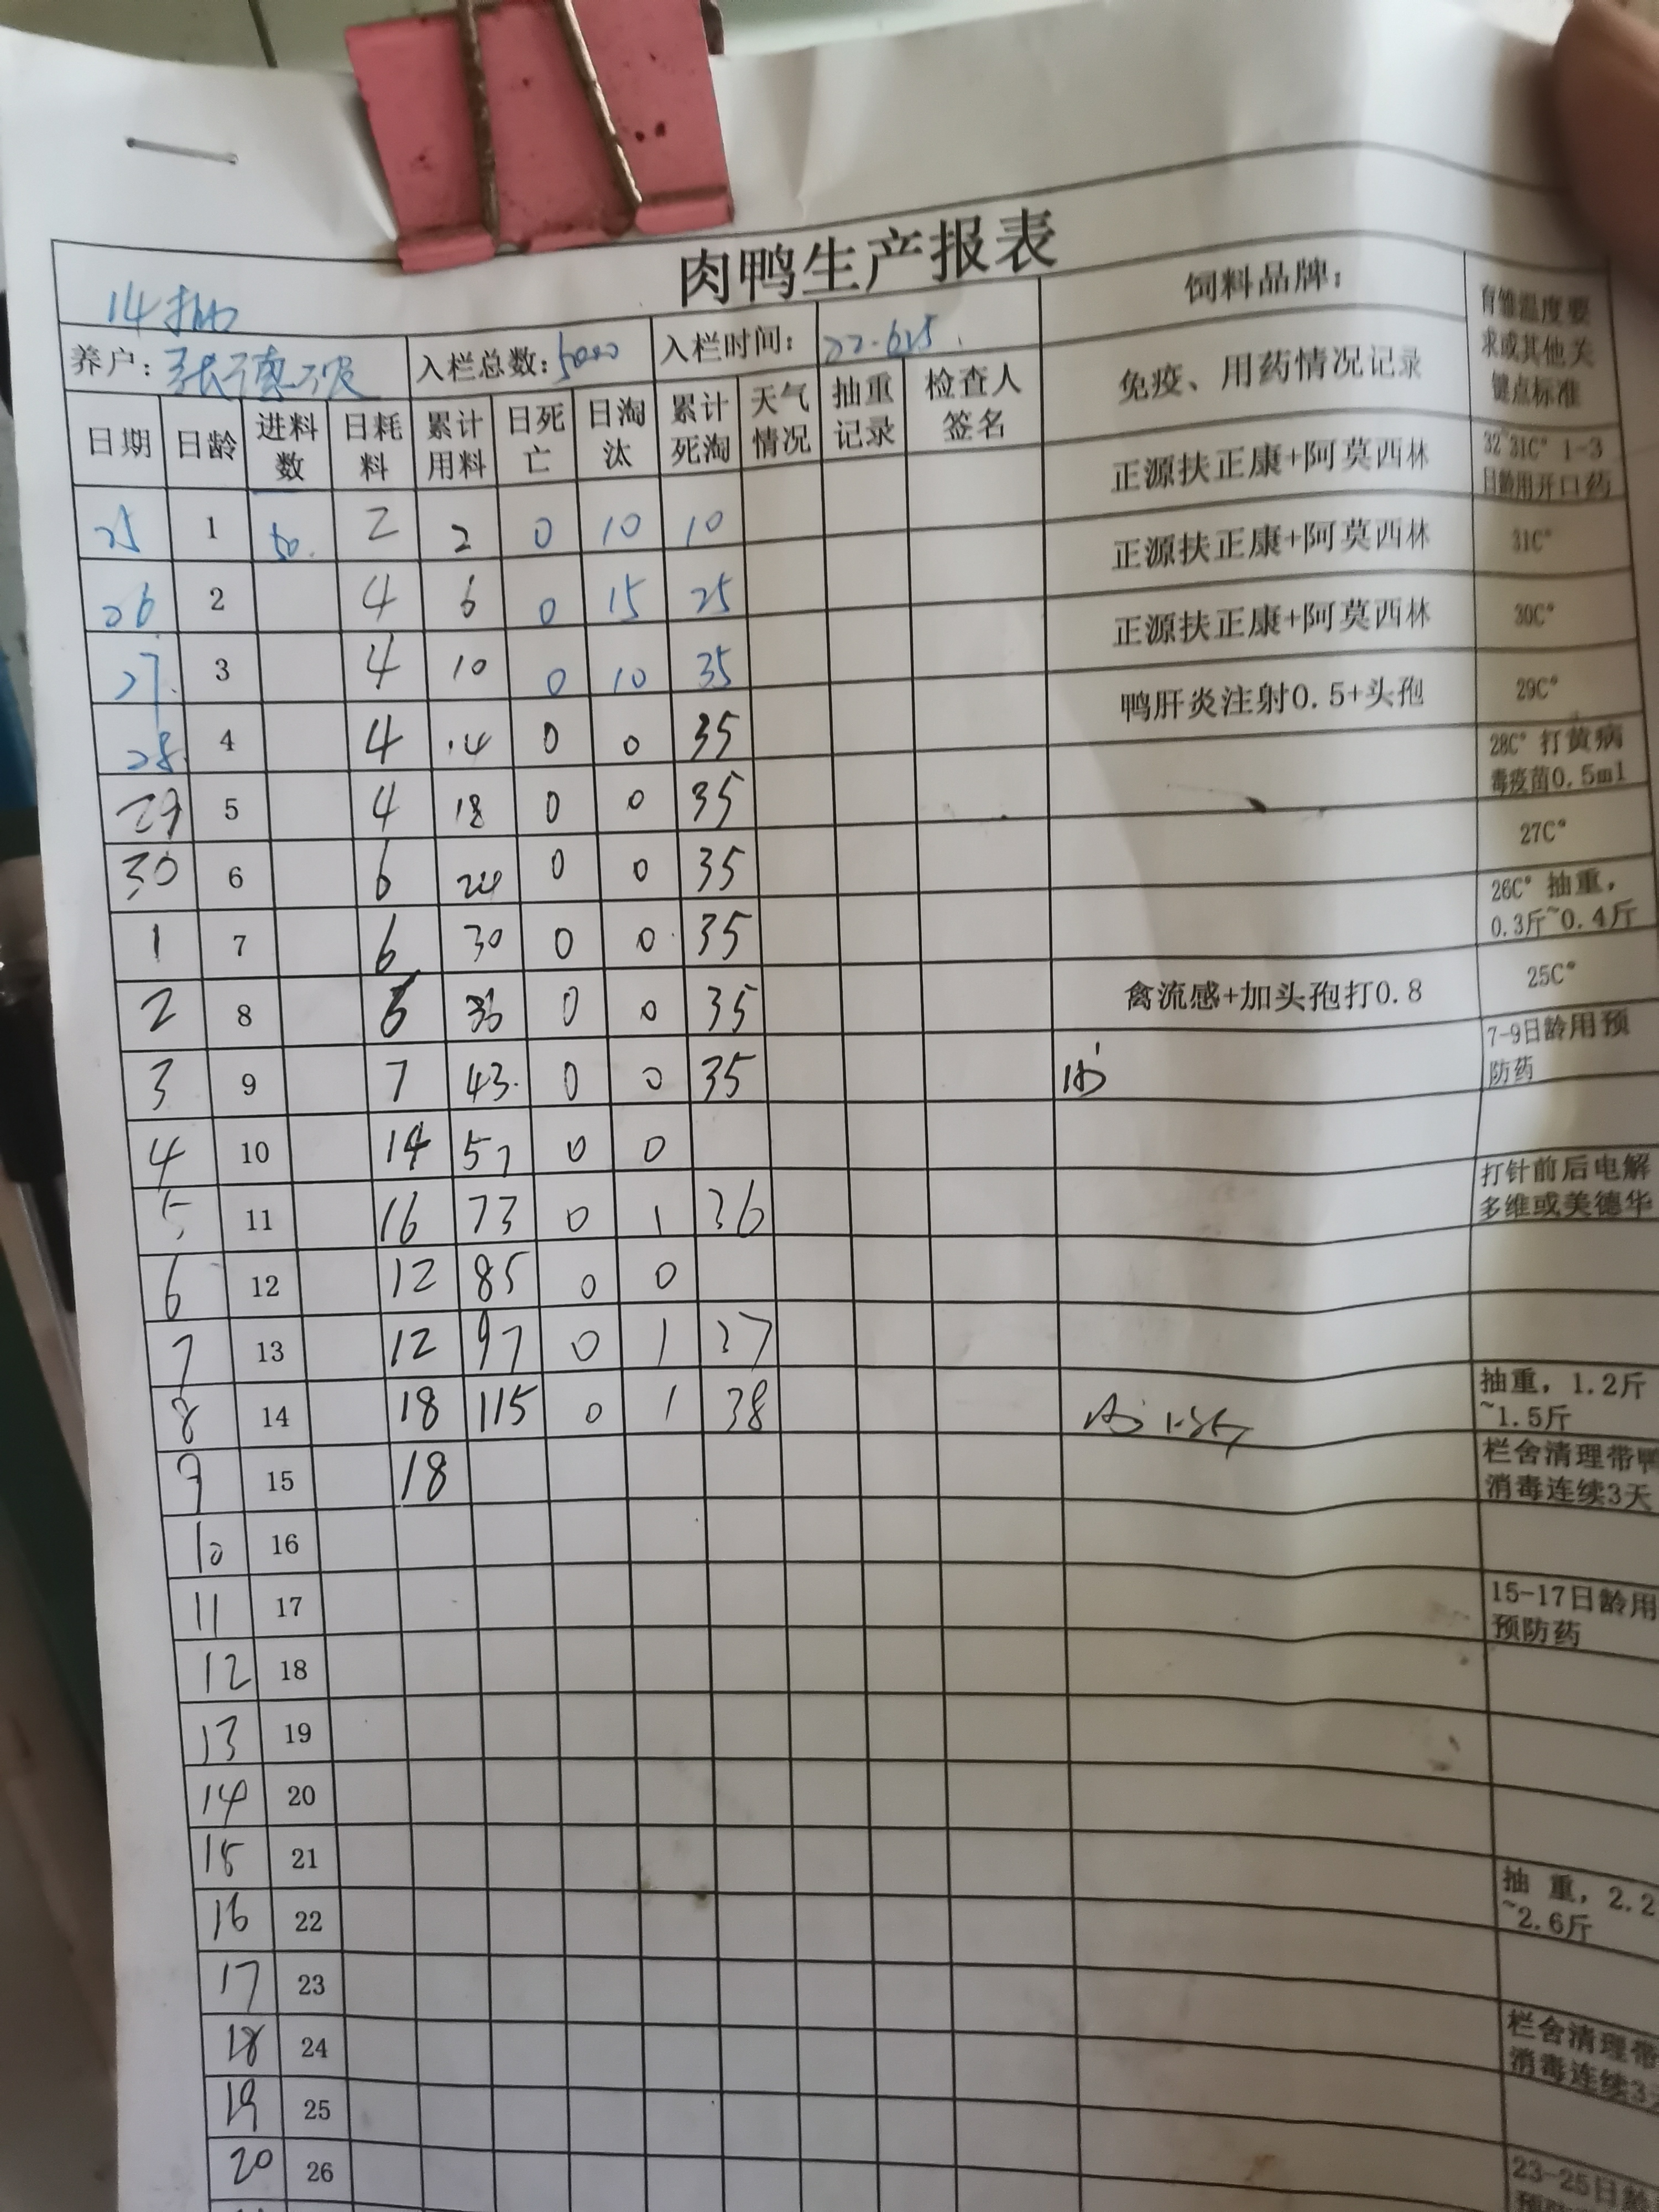 肉鸭生产报表
14批
养户：张德 入栏总数：5000 入栏时间：22.6.25 饲料品牌： 育雏温度要求或其他关键点标准
日期 日龄 进料数 日耗料 累计用料 日死亡 日淘汰 累计死淘 天气情况 抽重记录 检查人签名 免疫、用药情况记录
25 1 50. 2 2 0 10 10 正源扶正康+阿莫西林 32 31C° 1-3日龄用开口药
26 2 4 6 0 15 25 正源扶正康+阿莫西林 31C°
27. 3 4 10 0 10 35 正源扶正康+阿莫西林 30C°
28. 4 4 14 0 0 35 鸭肝炎注射0.5+头孢 29C°
29 5 4 18 0 0 35 28C° 打黄病毒疫苗0.5ml
30 6 6 24 0 0 35 27C°
1 7 6 30 0 0 35 26C° 抽重，0.3斤~0.4斤
2 8 6 36 0 0 35 禽流感+加头孢打0.8 25C°
3 9 7 43. 0 0 35 7-9日龄用预防药
4 10 14 57 0 0
5 11 16 73 0 1 36 打针前后电解多维或美德华
6 12 12 85 0 0
7 13 12 97 0 1 37
8 14 18 115 0 1 38 抽重，1.2斤~1.5斤
9 15 18 栏舍清理带鸭消毒连续3天
10 16
11 17 15-17日龄用预防药
12 18
13 19
14 20
15 21
16 22 抽 重，2.2~2.6斤
17 23
18 24 栏舍清理带消毒连续3
19 25
20 26 23-25日龄